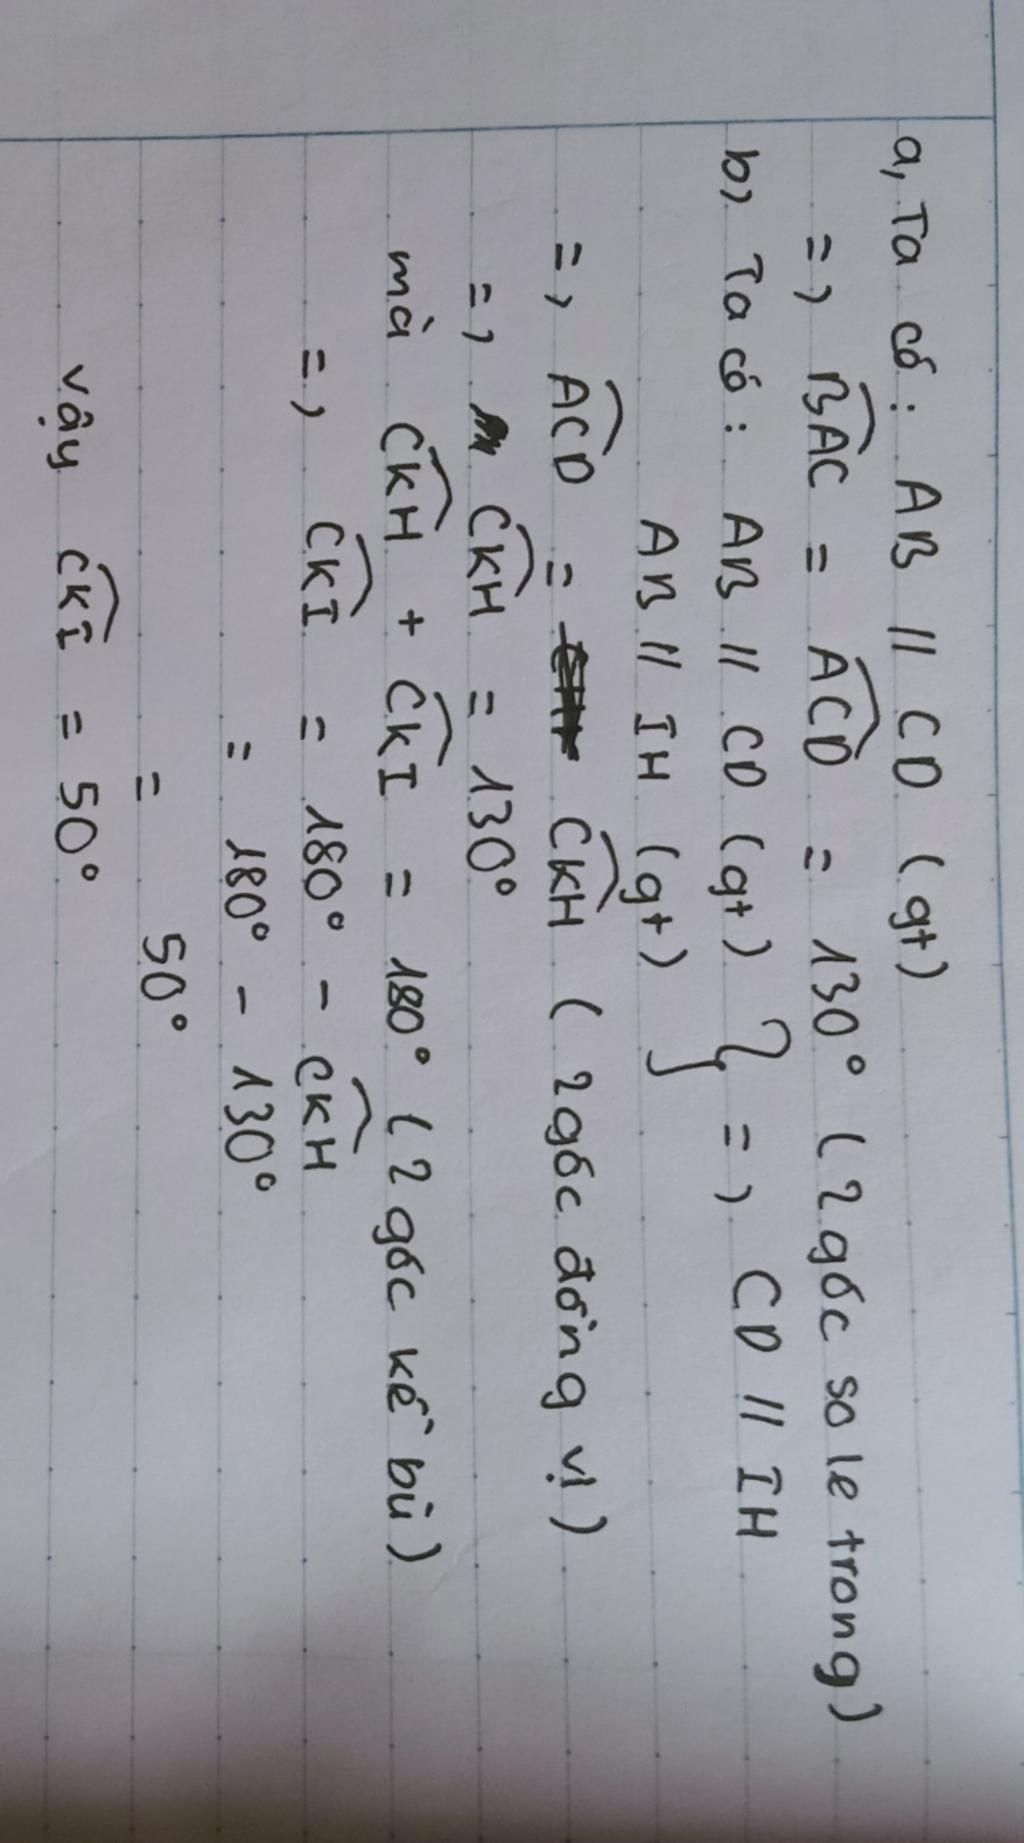 a, Ta có: AB // CD (gt)
=> BAC = ACD = 130° (2 góc so le trong)
b) Ta có: AB // CD (gt) } => CD // IH
AB // IH (gt)
=> ACD = CKH (2 góc đồng vị)
=> CKH = 130°
mà CKH + CKI = 180° (2 góc kề bù)
=> CKI = 180° - CKH
= 180° - 130°
= 50°
vậy CKI = 50°